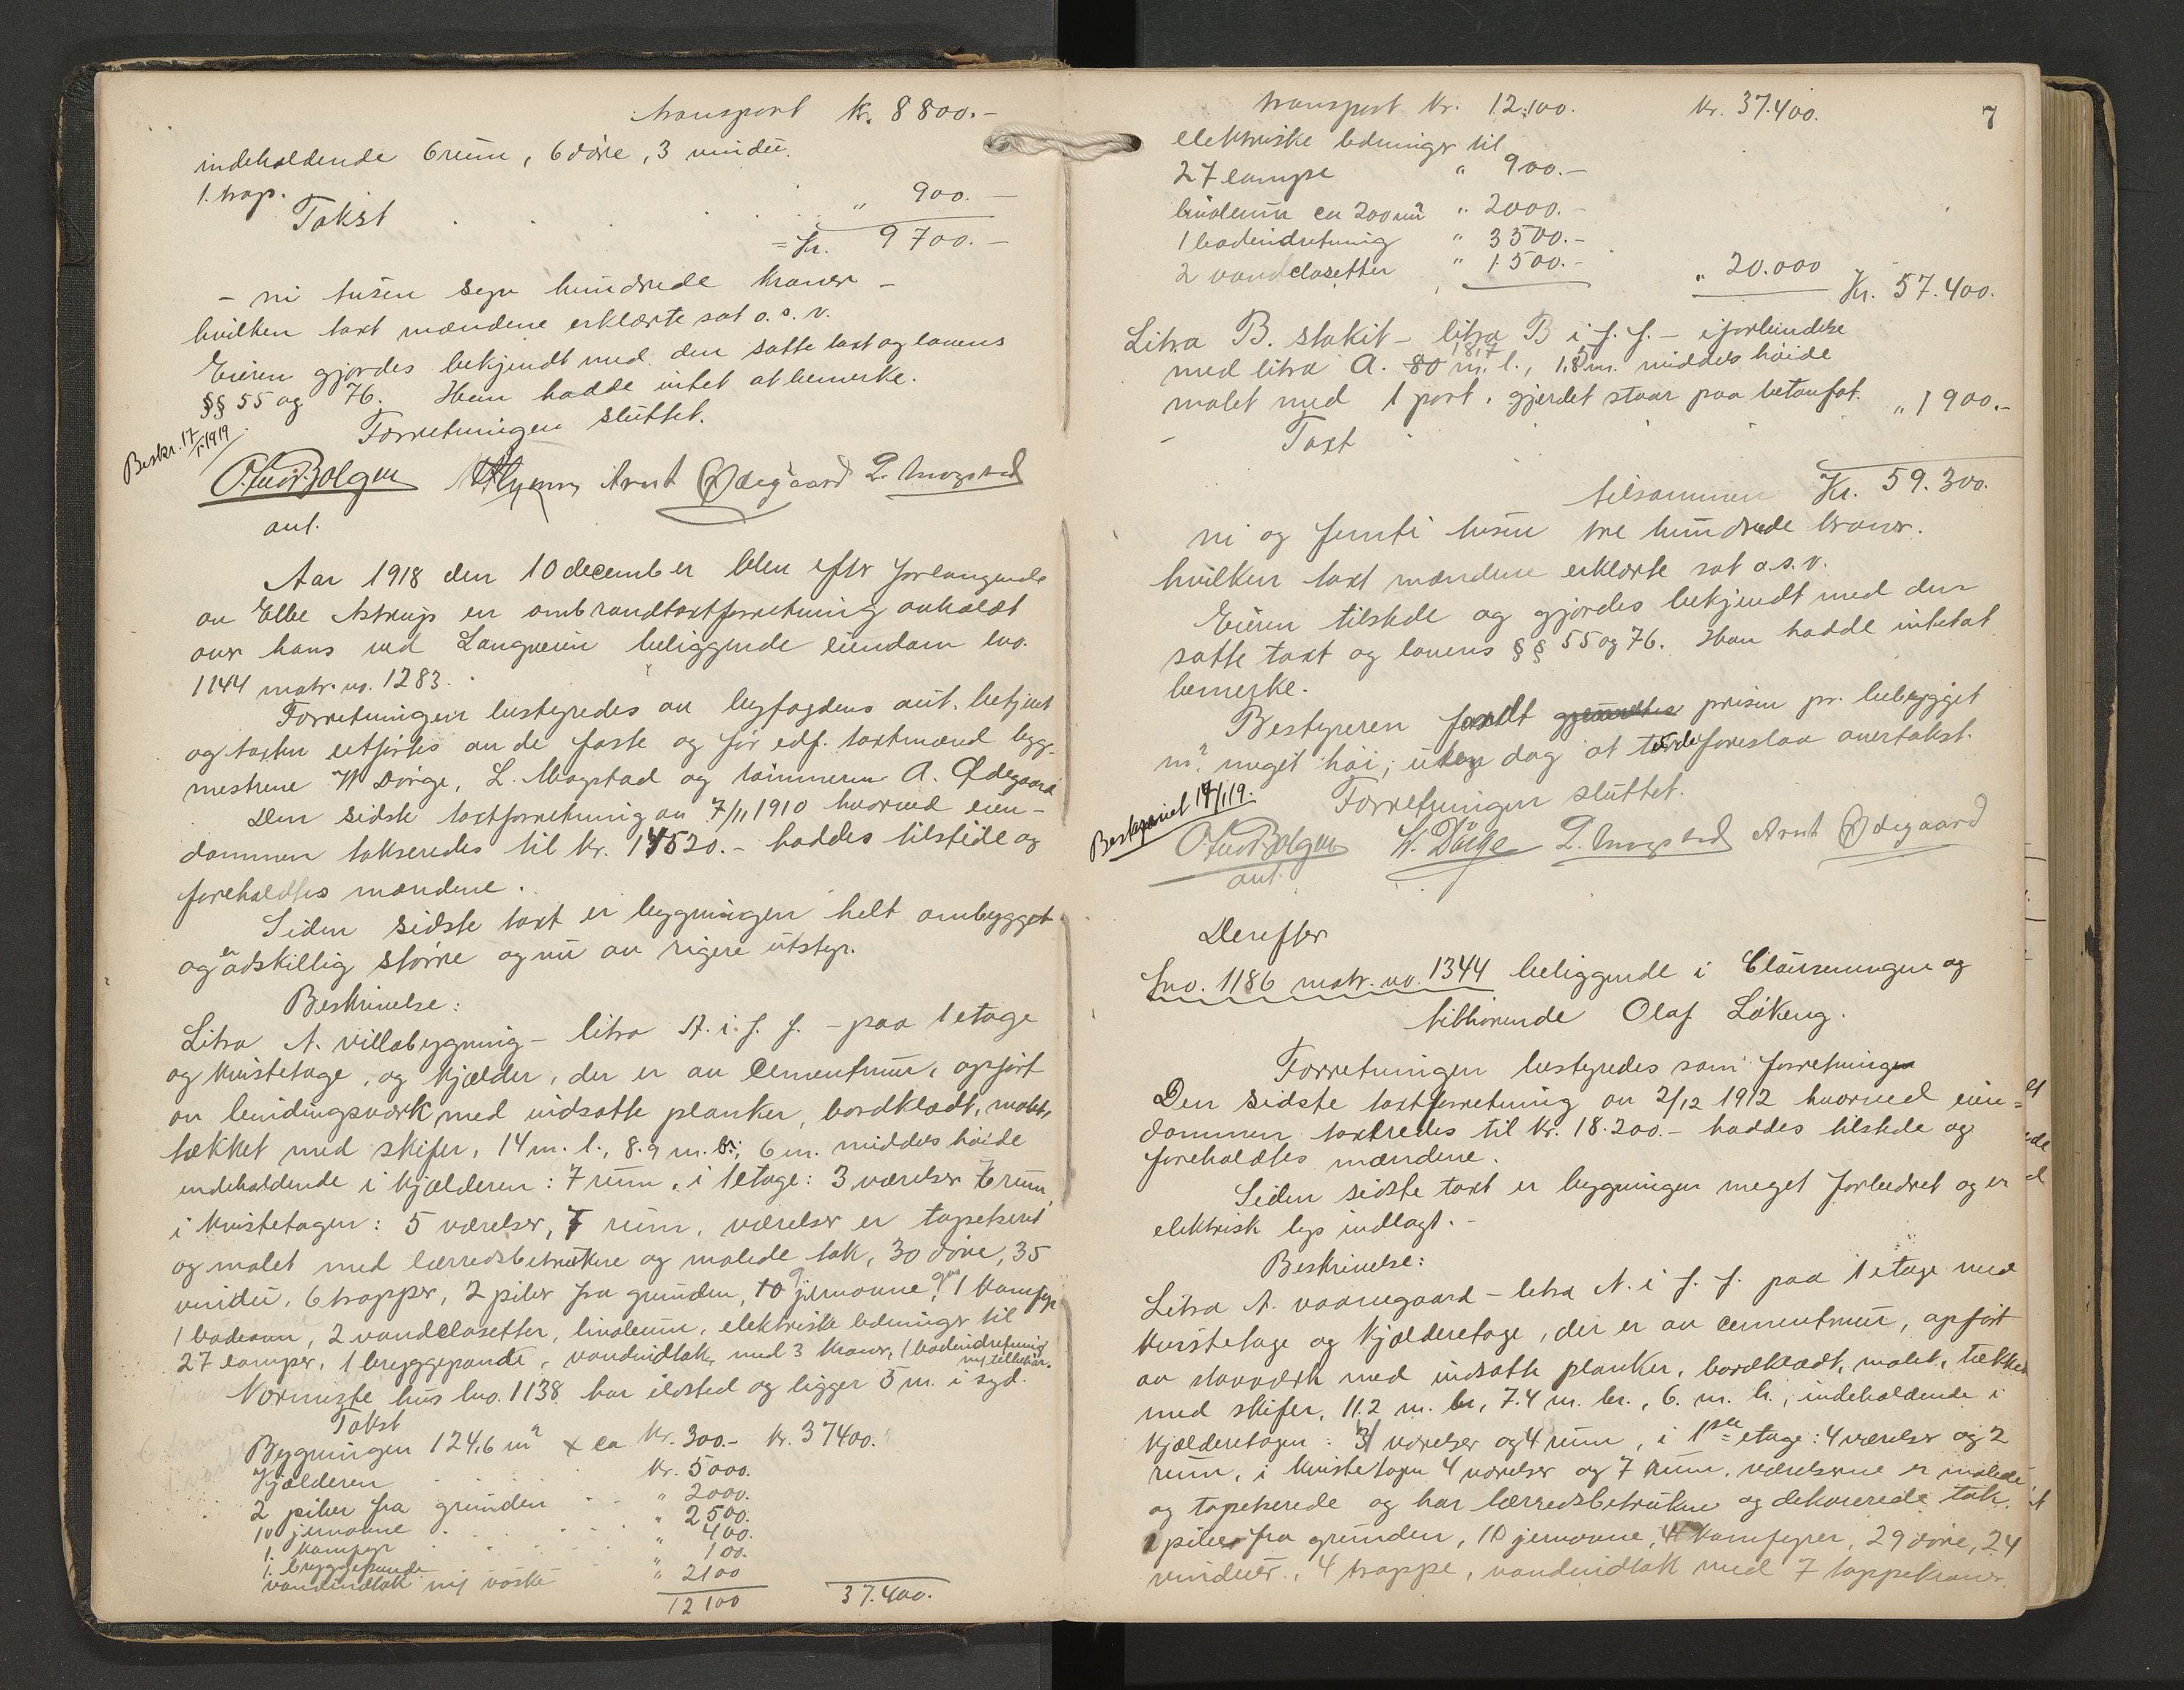 transport Kr. 8800.-
indeholdende 6 rum, 6 døre, 3 vindu.
1. trap.
Takst . . . . " 900.-
= Kr. 9700.-
- ni tusen syv hundrede kroner -
hvilken taxt mændene erklærte sat o. s. v.
Eieren gjordes bekjendt med den satte taxt og lovens
§§ 55 og 76. Han hadde intet at bemerke.
Forretningen sluttet.
Beskr. 17/1 1919
Arnt Ødegaard L. Mogstad
aut.
Aar 1918 den 10 december blev efter forlangende
av Ebbe Astrup en ombrandtaxtforretning avholdt
over hans ved Langveien beliggende eiendom lno.
1144 matr. no. 1283.
Forretningen bestyredes av byfogdens aut. betjent
og taxten utførtes av de faste og før edf. taxtmænd byg-
mestrene W Dørge, L. Mogstad og tømmerm A. Ødegaard
Den sidste taxtforretning av 7/11 1910 hvorved eien-
dommen takseredes til kr. 14520.- haddes tilstede og
foreholdtes mændene.
Siden sidste taxt er bygningen helt ombygget
og er adskillig større og nu av rigere utstyr.
Beskrivelse:
Litra A. villabygning - litra A. i f. f. - paa 1 etage
og kvistetage, og kjælder, der er av cementmur, opført
av bindingsværk med indsatte planker, bordklædt, malt,
tækket med skifer, 14 m. l., 8.9 m. br., 6 m. middels høide
indeholdende i kjælderen: 7 rum, i 1 etage: 3 værelser 6 rum,
i kvistetagen: 5 værelser, 7 rum, værelser er tapetsert
og malet med lærredsbetrukne og malede tak, 30 døre, 35
vindu, 6 trapper, 2 piber fra grunden, 10 jernovne, 1 komfyr
1 badeovn, 2 vandclosetter, linoleum, elektriske ledninger til
27 lamper, 1 bryggepande, vandindtak, med 3 kraner, 1 badeindretning
m/ tilbehør.
Nærmeste hus lno. 1138 har ildsted og ligger 5 m. i syd.
Takst
Bygningen 124,6 m² x ca Kr. 300.- Kr. 37400.
Kjælderen Kr. 5000.
2 piber fra grunden . . " 2000.
10 jernovne . . . . " 2500.
1. komfyr . . . " 400.
1. bryggepande " 100.
vandindtak m/ vaske " 2100
12100 37.400.
transport Kr. 12.100. Kr. 37.400. 7
elektriske ledninger til
27 lampe " 900.-
linoleum ca 200 m² " 2000.-
1 badeindretning " 3500.-
2 vandclosetter " 1500.- " 20.000 Kr. 57.400.
Litra B. stakit - litra B i f. f. - i forbindelse
med litra A. 80 m. l., 1,8 m. middels høide
malet med 1 port. gjerdet staar paa betonfot.
- Taxt " 1900.-
tilsammen Kr. 59.300.
ni og femti tusen tre hundrede kroner.
hvilken taxt mændene erklærte sat o. s. v.
Eieren tilstede og gjordes bekjendt med den
satte taxt og lovens §§ 55 og 76. Han hadde intet at
bemerke.
Bestyreren fandt prisen pr. bebygget
m². meget høi, uten dog at turde foreslaa overtakst.
Forretningen sluttet.
Beskrevet 17/1 19.
W. Dørge L. Mogstad Arnt Ødegaard
aut.
Derefter
Lno. 1186 matr. no. 1344 beliggende i Clauseningen og
tilhørende Olaf Løkeng.
Forretningen bestyredes som forretningen
Den sidste taxtforretning av 2/12 1912 hvorved eien-
dommen taxtredes til Kr. 18.200.- haddes tilstede og
foreholdtes mændene.
Siden sidste taxt er bygningen meget forbedret og er
elektrisk lys indlagt. -
Beskrivelse:
Litra A. vaaningsgaard - letra A. i f. f. paa 1 etage med
kvistetage og kjælderetage, der er av cementmur, opført
av stavværk med indsatte planker, bordklædt, malet, tækket
med skifer, 11.2 m. l., 7.4 m. br., 6. m. h., indeholdende i
kjælderetagen: 3 værelser og 4 rum, i 1ste etage: 4 værelser og 2
rum, i kvistetagen 4 værelser og 7 rum. værelserne er malede
og tapetserede og har lærredsbetrukne og dekorerede tak.
piber fra grunden, 10 jernovne, 4 komfyrer, 29 døre, 24
vinduer, 4 trappe, vandindtak med 7 tappekraner.